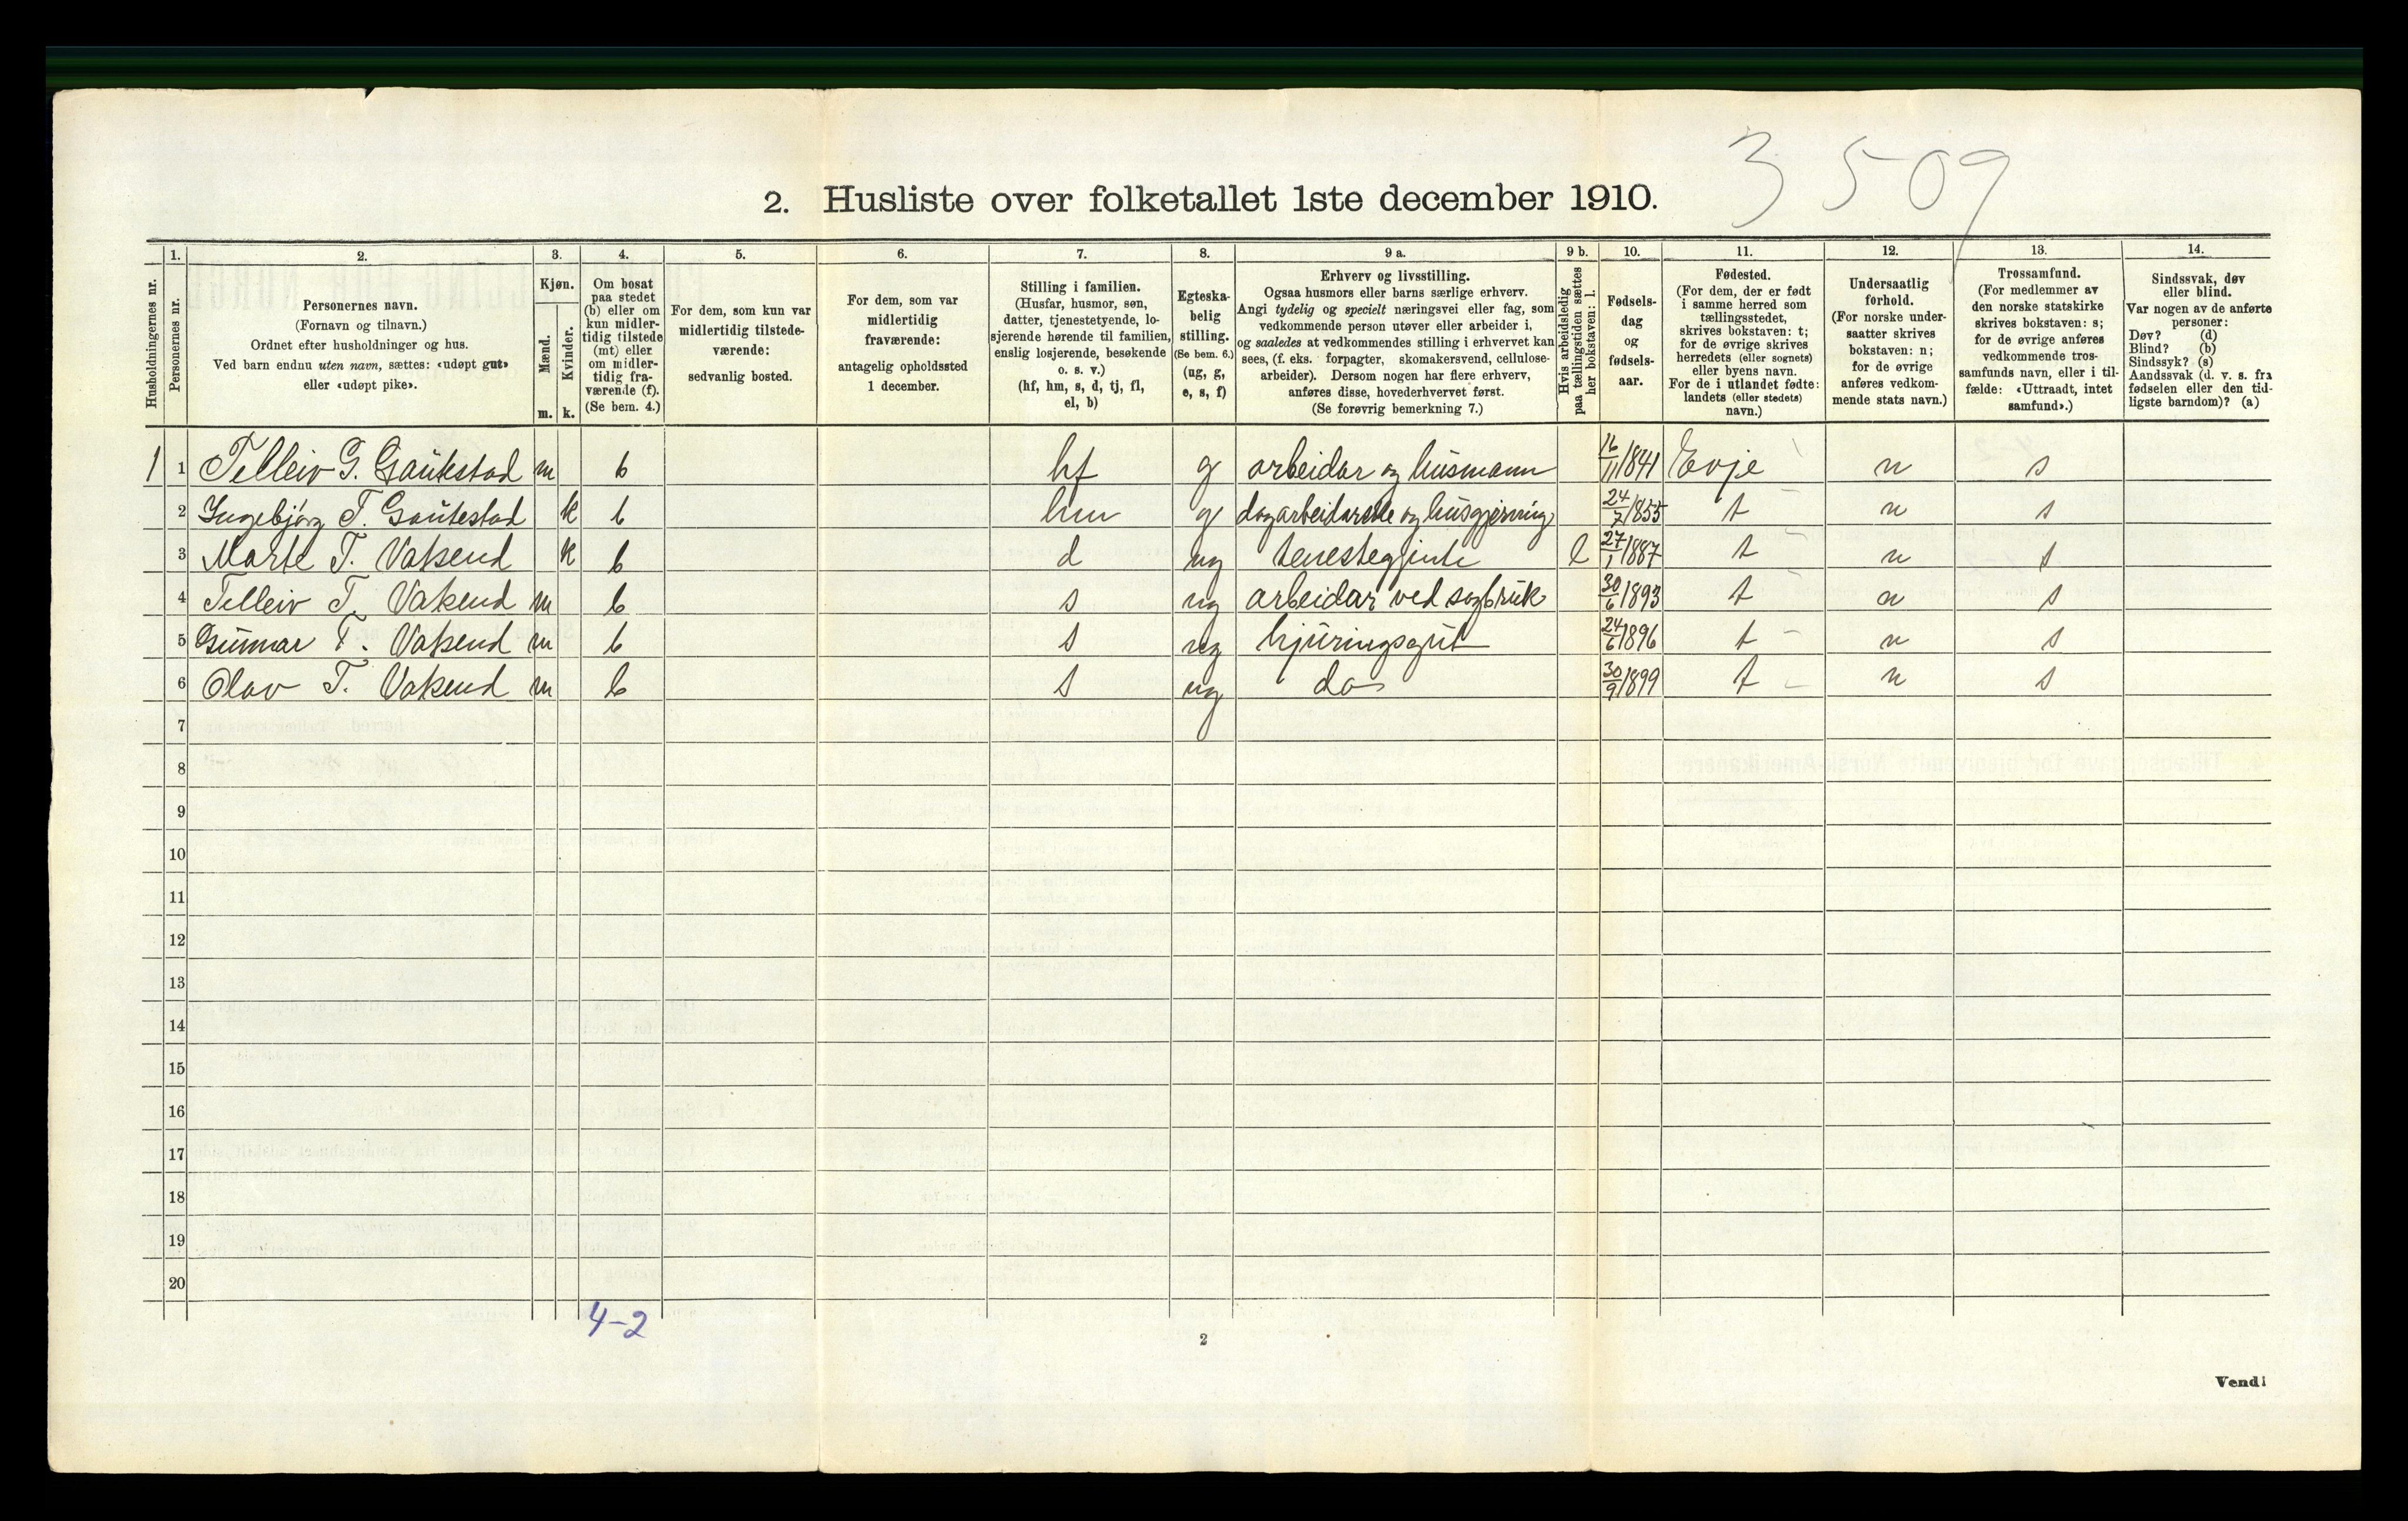 3 509
2. Husliste over folketallet 1ste december 1910.
Husholdningernes nr.
1. Personernes nr.
2. Personernes navn. (Fornavn og tilnavn.) Ordnet efter husholdninger og hus. Ved barn endnu uten navn, sættes: «udøpt gut» eller «udøpt pike».
3. Kjøn. Mænd. m. Kvinder. k.
4. Om bosat paa stedet (b) eller om kun midlertidig tilstede (mt) eller om midlertidig fraværende (f). (Se bem. 4.)
5. For dem, som kun var midlertidig tilstedeværende: sedvanlig bosted.
6. For dem, som var midlertidig fraværende: antagelig opholdssted 1 december.
7. Stilling i familien. (Husfar, husmor, søn, datter, tjenestetyende, losjerende hørende til familien, enslig losjerende, besøkende o. s. v.) (hf, hm, s, d, tj, fl, el, b)
8. Egteskabelig stilling. (Se bem. 6.) (ug, g, e, s, f)
9 a. Erhverv og livsstilling. Ogsaa husmors eller barns særlige erhverv. Angi tydelig og specielt næringsvei eller fag, som vedkommende person utøver eller arbeider i, og saaledes at vedkommendes stilling i erhvervet kan sees, (f. eks. forpagter, skomakersvend, cellulosearbeider). Dersom nogen har flere erhverv, anføres disse, hovederhvervet først. (Se forøvrig bemerkning 7.)
9 b. Hvis arbeidsledig paa tællingstiden sættes her bokstaven: l.
10. Fødselsdag og fødselsaar.
11. Fødested. (For dem, der er født i samme herred som tællingsstedet, skrives bokstaven: t; for de øvrige skrives herredets (eller sognets) eller byens navn. For de i utlandet fødte: landets (eller stedets) navn.)
12. Undersaatlig førhold. (For norske undersaatter skrives bokstaven: n; for de øvrige anføres vedkommende stats navn.)
13. Trossamfund. (For medlemmer av den norske statskirke skrives bokstaven: s; for de øvrige anføres vedkommende trossamfunds navn, eller i tilfælde: «Uttraadt, intet samfund».)
14. Sindssvak, døv eller blind. Var nogen av de anførte personer: Døv? (d) Blind? (b) Sindssyk? (s) Aandssvak (d. v. s. fra fødselen eller den tidligste barndom)? (a)
1 1 Telleiv G. Gautestad m b hf g arbeidar og husmann 16/11 1841 Evje n s
2 Ingebjørg T. Gautestad k b hm g dagarbeidarske og husgjerning 24/7 1855 t n s
3 Marte T. Vatsend k b d ug tenestegjente l 27/1 1887 t n s
4 Telleiv T. Vatsend m b s ug arbeidar ved sagbruk 30/6 1893 t n s
5 Gunnar T. Vatsend m b s ug hjuringsgut 24/6 1896 t n s
6 Olav T. Vatsend m b s ug do 30/9 1899 t n s
7
8
9
10
11
12
13
14
15
16
17
18
19
20
4-2
2
Vend!